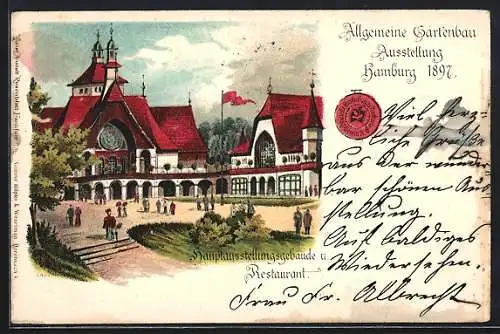 Allgemeine Gartenbau
Ausstellung
Hamburg 1897.
Hauptausstellungsgebäude u.
Restaurant.
Viel herz-
liche Grüße
aus der wunder
bar schönen Aus
stellung.
Auf baldiges
Wiedersehen.
Frau Fr. Albrecht